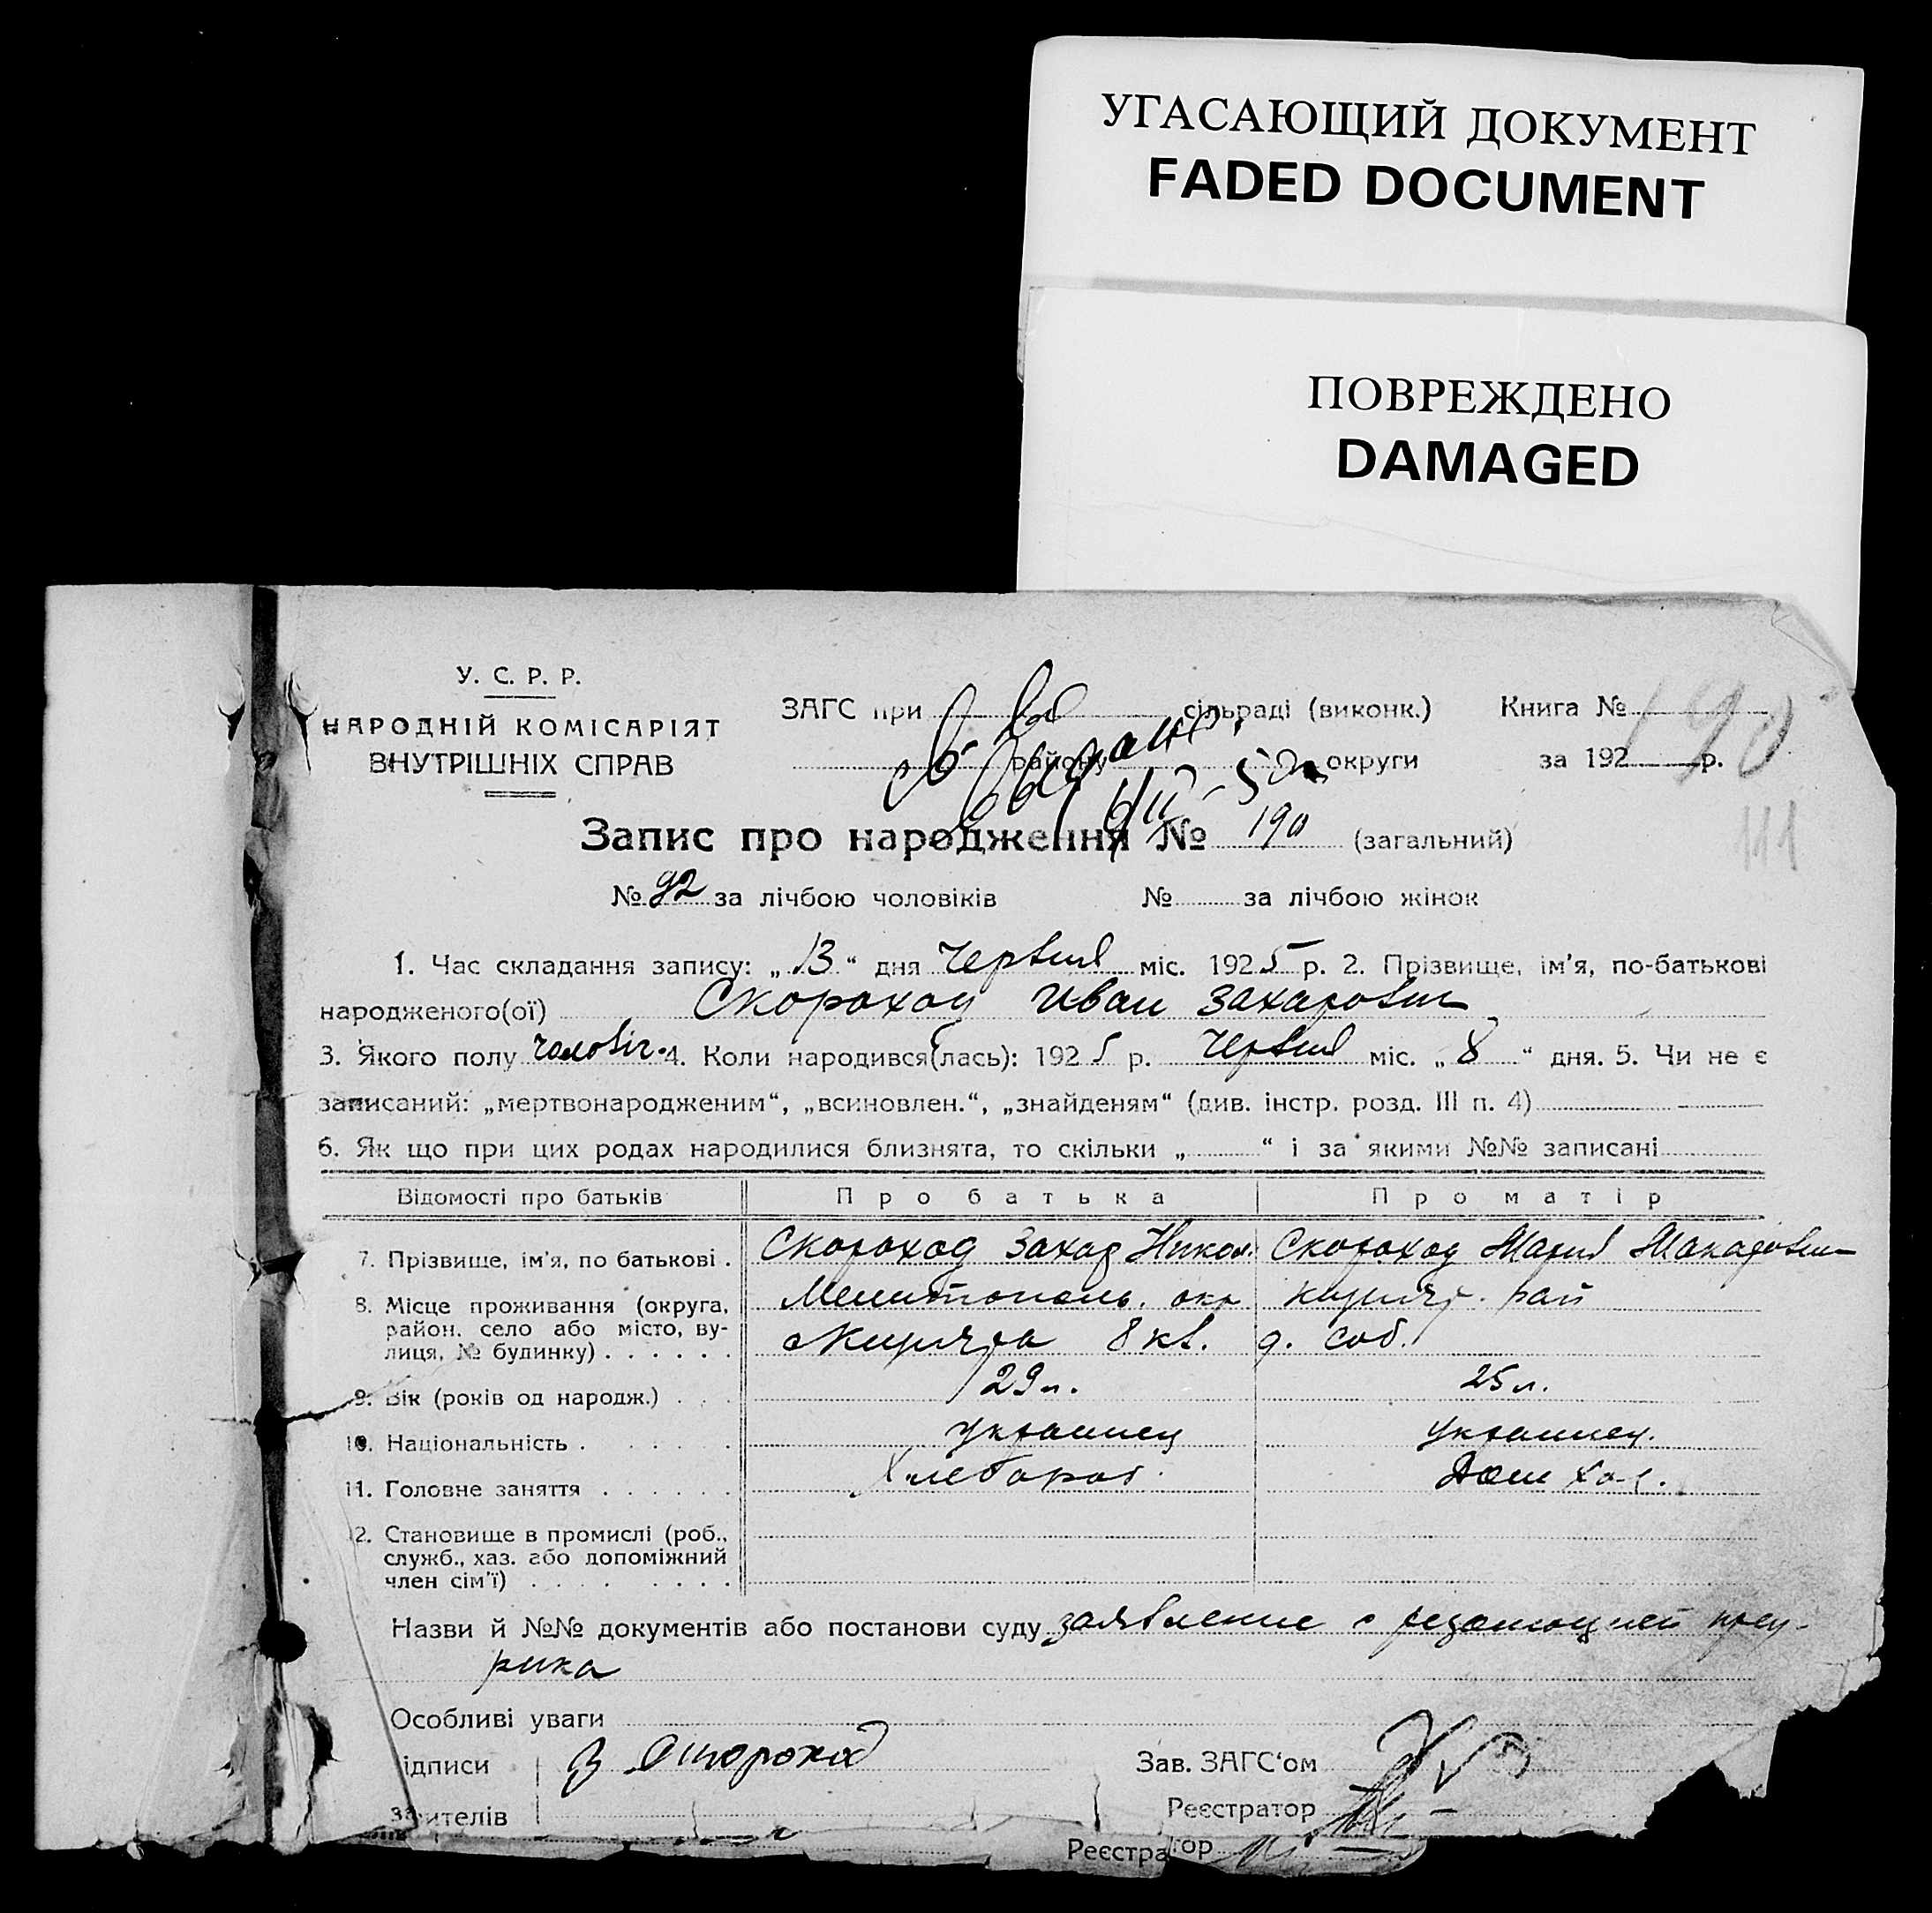 УГАСАЮЩИЙ ДОКУМЕНТ
FADED DOCUMENT
ПОВРЕЖДЕНО
DAMAGED
У. С. Р. Р.
НАРОДНІЙ КОМІСАРІЯТ
ВНУТРІШНІХ СПРАВ
ЗАГС при сільраді (виконк.)
району округи
Книга №
за 192 р.
190
111
Запис про народження № 190 (загальний)
№ 92 за лічбою чоловіків № за лічбою жінок
1. Час складання запису: „ 13 “ дня Червня міс. 1925 р. 2. Прізвище, ім’я, по-батькові
народженого(ої) Скороход Иван Захарович
3. Якого полу чоловіч. 4. Коли народився(лась): 1925 р. Червня міс. „ 8 “ дня. 5. Чи не є
записаний: „мертвонародженим“, „всиновлен.“, „знайденям“ (див. інстр. розд. III п. 4)
6. Як що при цих родах народилися близнята, то скільки „ “ і за якими №№ записані
Відомості про батьків Про батька Про матір
7. Прізвище, ім’я, по батькові . Скороход Захар Никол. Скороход Мария Макаровна
8. Місце проживання (округа, Мелитополь. окр
район, село або місто, ву- 8 кв. д. соб.
лиця, № будинку) . . . . . .
9. Вік (років од народж.) . . . 29 л. 25 л.
10. Національність . . . . . . украинец украинец.
11. Головне заняття . . . . . . Хлебороб. Дом хоз.
12. Становище в промислі (роб.,
служб., хаз. або допоміжний
член сім’ї) . . . . . . . .
Назви й №№ документів або постанови суду заявление с резолюцией пред-
рика
Особливі уваги
ідписи З Скороход Зав. ЗАГС‘ом
ителів Реєстратор
Реєстратор